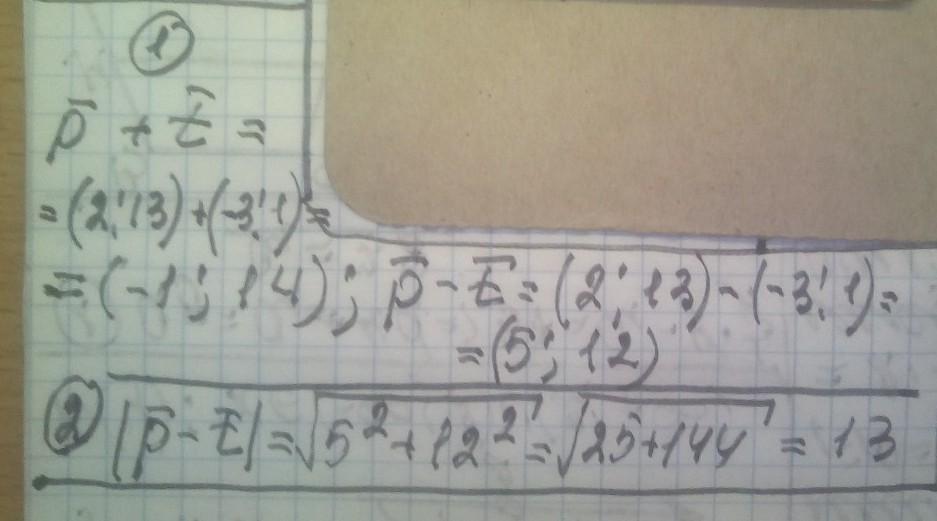 ①
p̄ + t̄ =
= (2; 13) + (-3; 1) =
= (-1; 14); p̄ - t̄ = (2; 13) - (-3; 1) =
= (5; 12)
② |p̄ - t̄| = √5² + 12² = √25 + 144 = 13